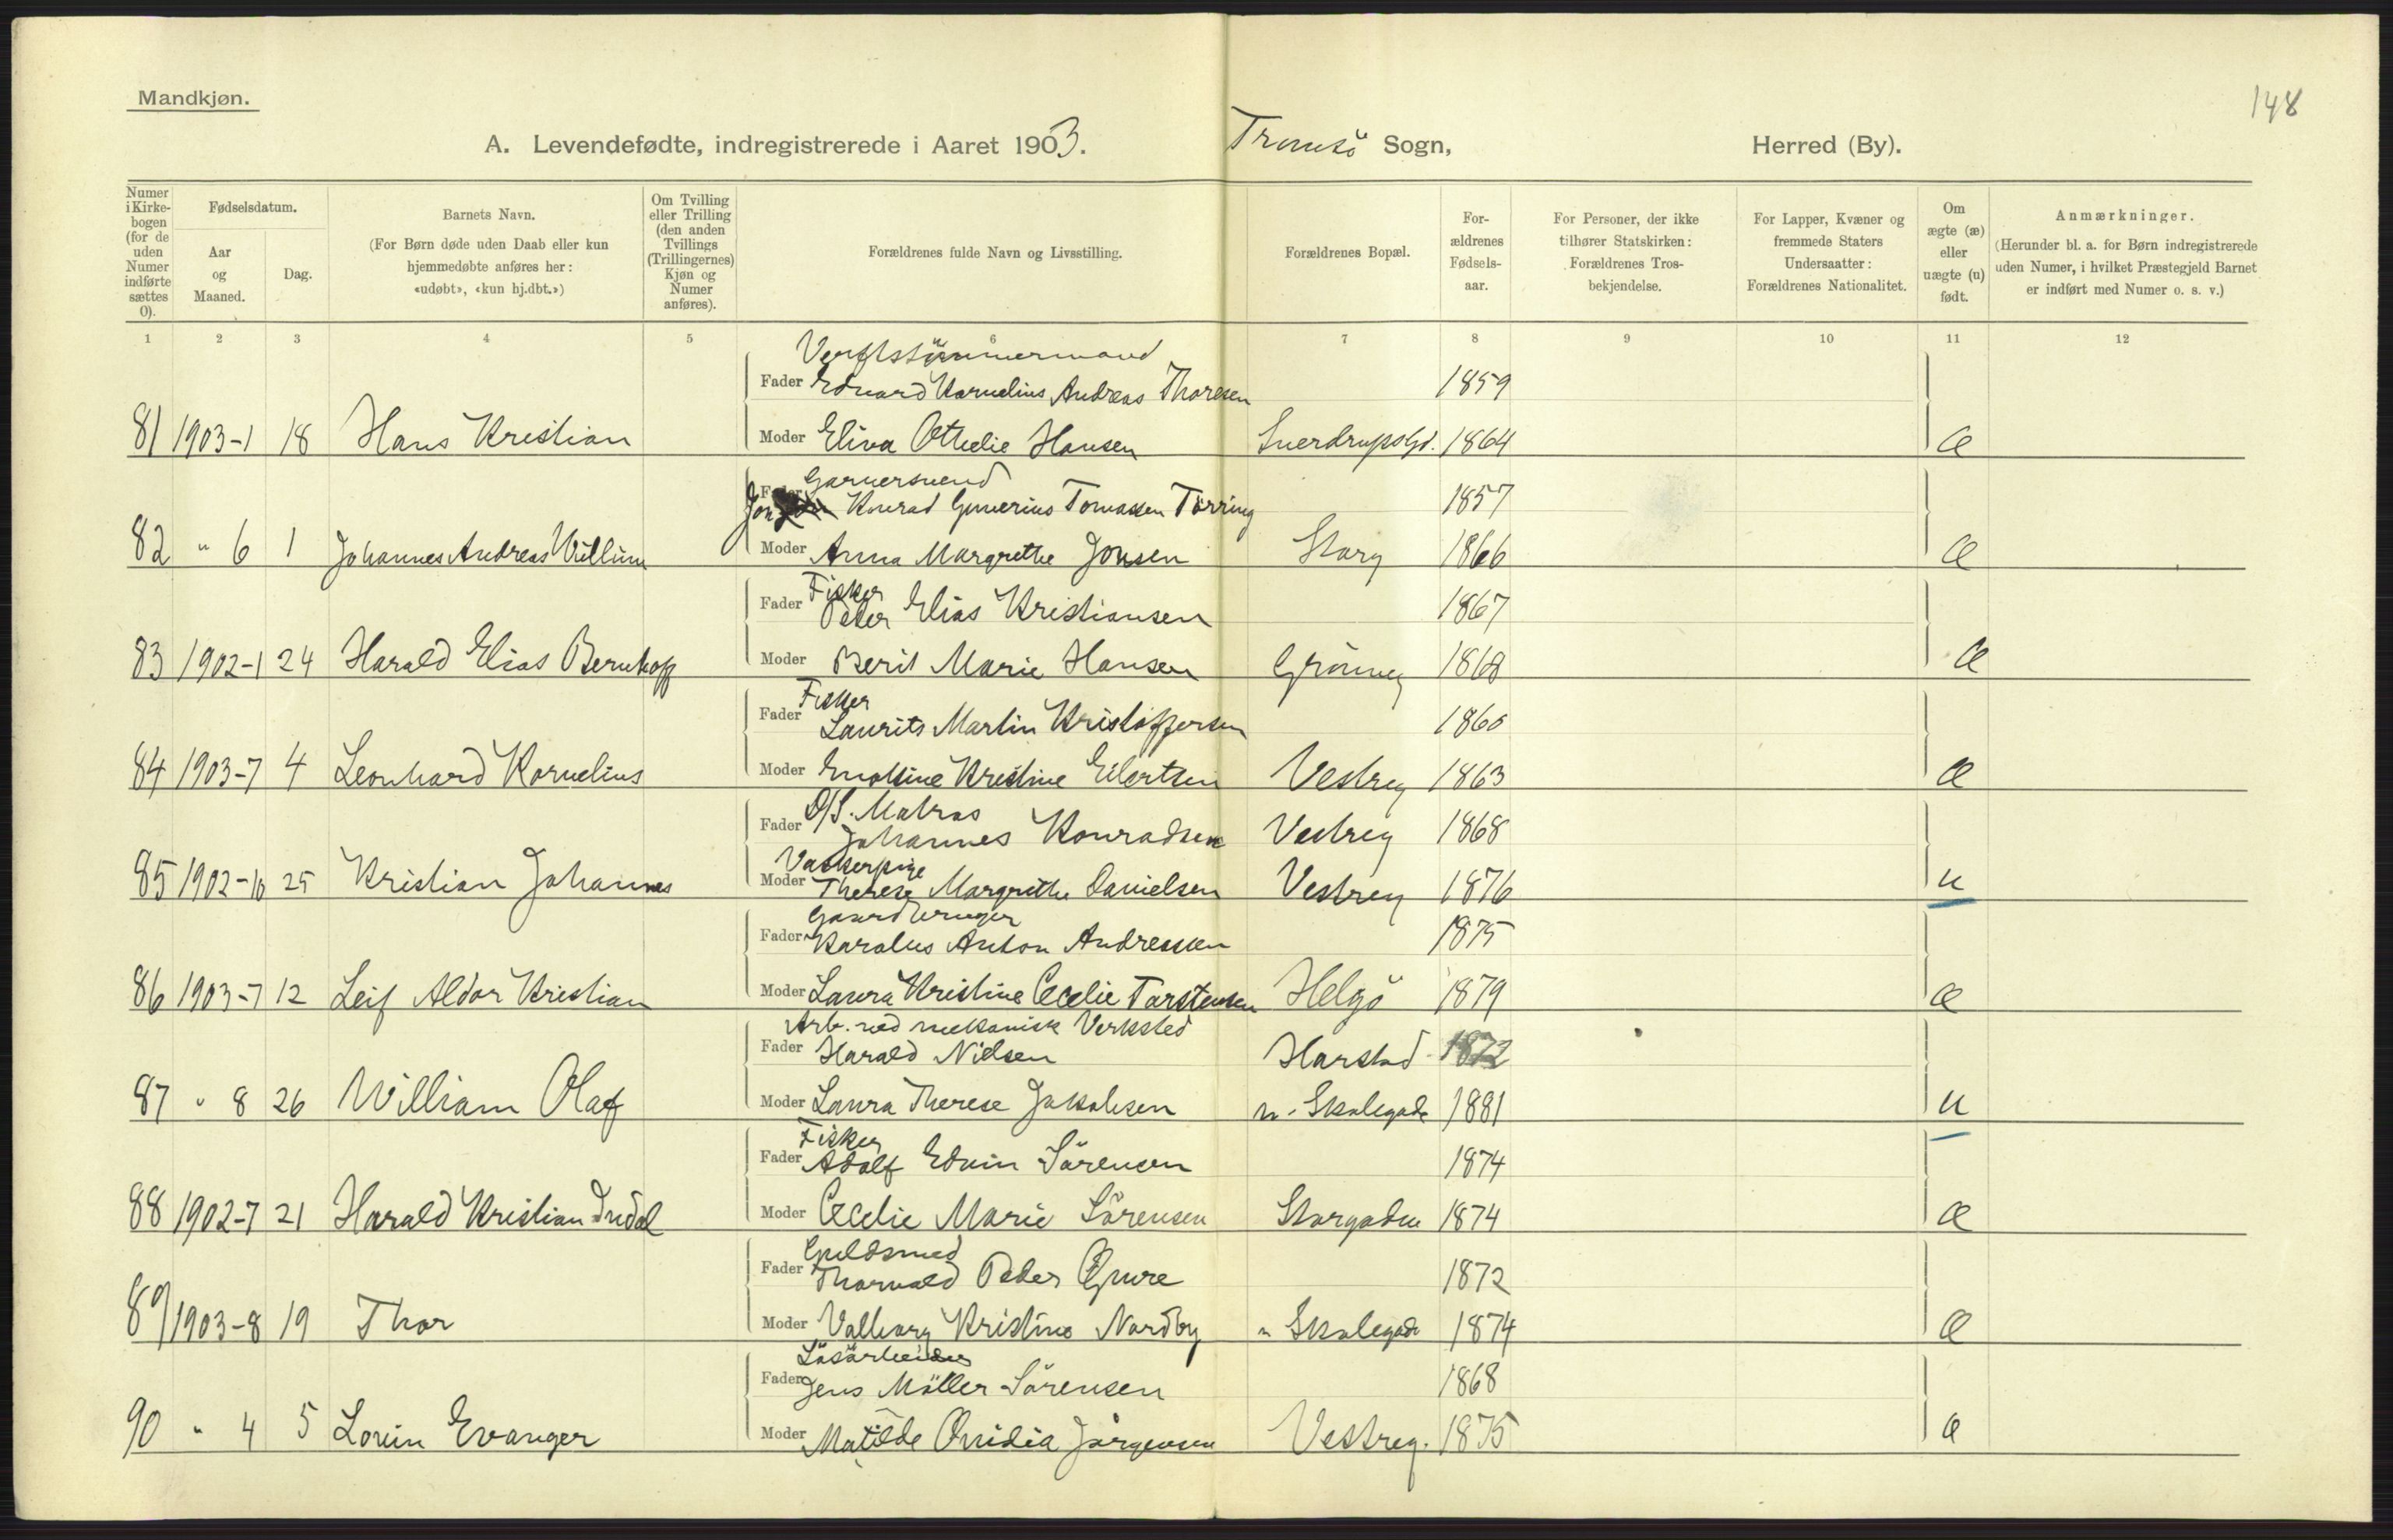 Mandkjøn.
148
A. Levendefødte, indregistrerede i Aaret 1903. Tromsö Sogn, Herred (By).
Numer i Kirkebogen (for de uden Numer indførte sættes 0).
Fødselsdatum.
Aar og Maaned.
Dag.
Barnets Navn.
(For Børn døde uden Daab eller kun hjemmedøbte anføres her: «udøbt», «kun hj.dbt.»)
Om Tvilling eller Trilling (den anden Tvillings (Trillingernes) Kjøn og Numer anføres).
Forældrenes fulde Navn og Livsstilling.
Forældrenes Bopæl.
Forældrenes Fødselsaar.
For Personer, der ikke tilhører Statskirken: Forældrenes Trosbekjendelse.
For Lapper, Kvæner og fremmede Staters Undersaatter: Forældrenes Nationalitet.
Om ægte (æ) eller uægte (u) født.
Anmærkninger.
(Herunder bl. a. for Børn indregistrerede uden Numer, i hvilket Præstegjeld Barnet er indført med Numer o. s. v.)
1 2 3 4 5 6 7 8 9 10 11 12
Verftstömmermand
Fader Edvard Kornelius Andreas Thoresen 1859
81 1903-1 18 Hans Kristian Moder Eliva Othelie Hansen 1864 Æ
Garversvend
Fader Jon Konrad Tomassen Tørring 1857
82 " 6 1 Johannes Andreas Villum Moder Anna Margrethe Jonsen Storg 1866 Æ
Fisker
Fader Peter Elias Kristiansen 1867
83 1902-1 24 Harald Elias Bernhoff Moder Berit Marie Hansen Grönneg 1868 Æ
Fisker
Fader Laurits Martin Kristoffersen 1860
84 1903-7 4 Leonhard Kornelius Moder Kristine Eilertsen Vestreg 1863 Æ
D/S. Matros
Fader Johannes Konradsen Vestreg 1868
Vaskerpige
85 1902-10 25 Kristian Johannes Moder Therese Margrethe Danielsen Vestreg 1876 u
Gaardbruger
Fader Karolus Anton Andreassen 1875
86 1903-7 12 Leif Aldor Kristian Moder Laura Kristine Cecelie Torstensen Helgö 1879 Æ
Arb. ved mekanisk Verksted
Fader Harald Nielsen Harstad 1872
87 " 8 26 William Olaf Moder Laura Therese Jakobsen n. Skolegade 1881 u
Fisker
Fader Adolf Edvin Sörensen 1874
88 1902-7 21 Harald Kristian Indal Moder Cecelie Marie Sörensen Storgaden 1874 Æ
Guldsmed
Fader Thorvald Peder Gjære 1872
89 1903-8 19 Thor Moder Valborg Kristine Nordby n Skolegade 1874 Æ
Lösarbeider
Fader Jens Möller Sörensen 1868
90 " 4 5 Lorin Evanger Moder Matilde Ovidia Jörgensen Vestreg. 1875 Æ